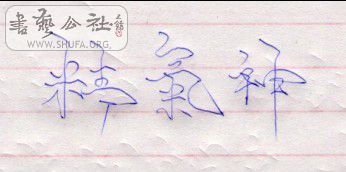 書藝公社
WWW.SHUFA.ORG
精氣神